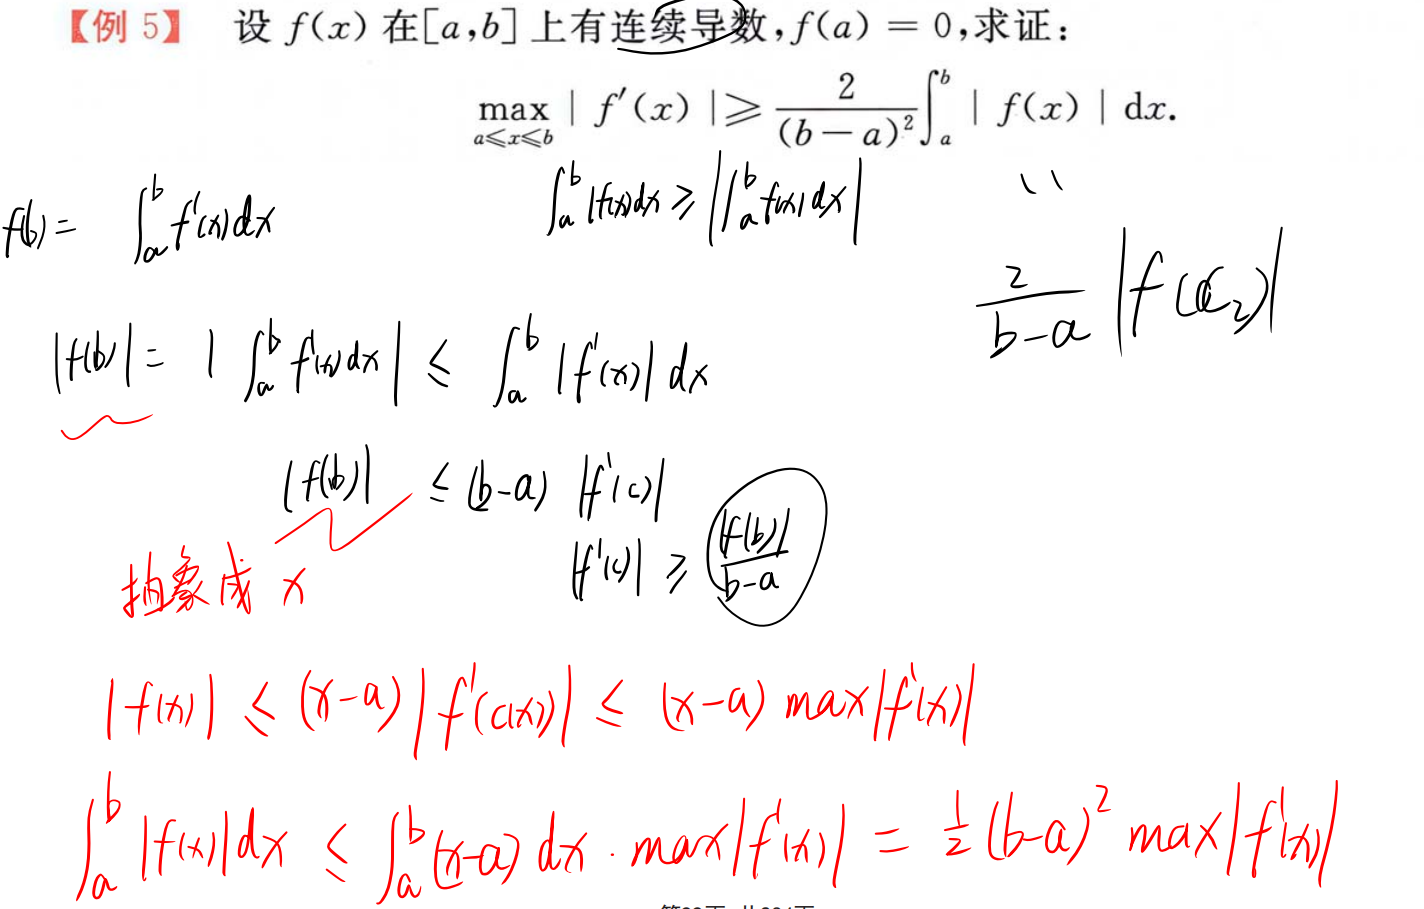 【例 5】 设 f(x) 在[a,b] 上有连续导数,f(a) = 0,求证:
max a≤x≤b | f′(x) |≥ 2/(b−a)² ∫_a^b | f(x) | dx.
f(b) = ∫_a^b f'(x)dx
∫_a^b |f(x)|dx ≥ |∫_a^b f(x)dx|
|f(b)| = | ∫_a^b f'(x)dx | ≤ ∫_a^b |f'(x)| dx
2/(b-a) |f(c₂)|
|f(b)| ≤ (b-a) |f'(c)|
|f'(c)| ≥ |f(b)|/(b-a)
抽象成 x
|f(x)| ≤ (x-a)|f'(c(x))| ≤ (x-a) max|f'(x)|
∫_a^b |f(x)|dx ≤ ∫_a^b (x-a) dx · max|f'(x)| = 1/2 (b-a)² max|f'(x)|